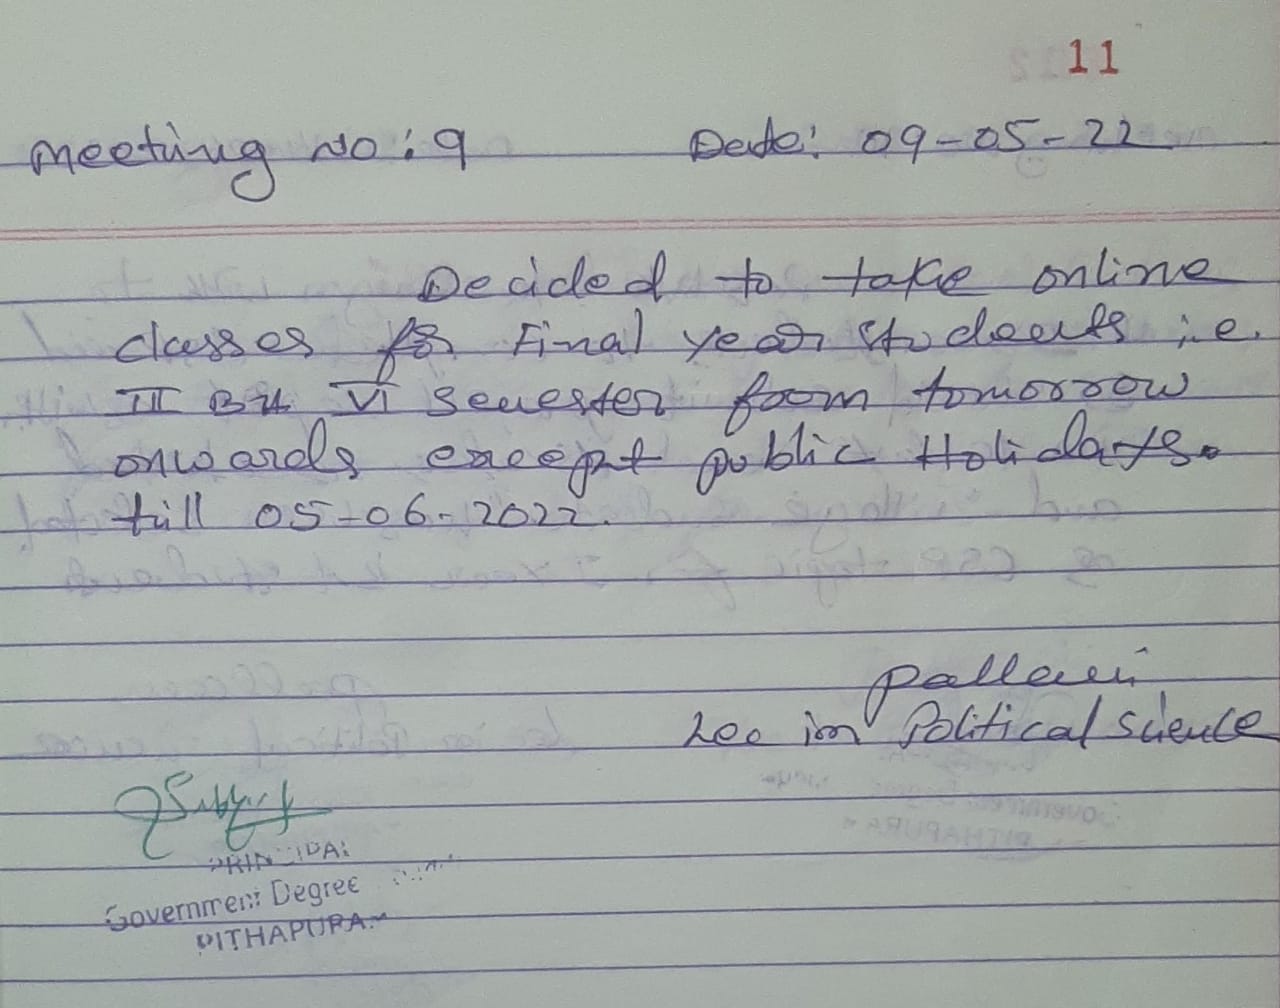 11
Meeting No: 9 Date: 09-05-22
Decided to take online
classes for Final year students i.e.
III BA VI semester from tomorrow
onwards except public Holidays.
till 05-06-2022.
Pallavi
Lec in Political Science
PRINCIPAL
Government Degree
PITHAPURAM